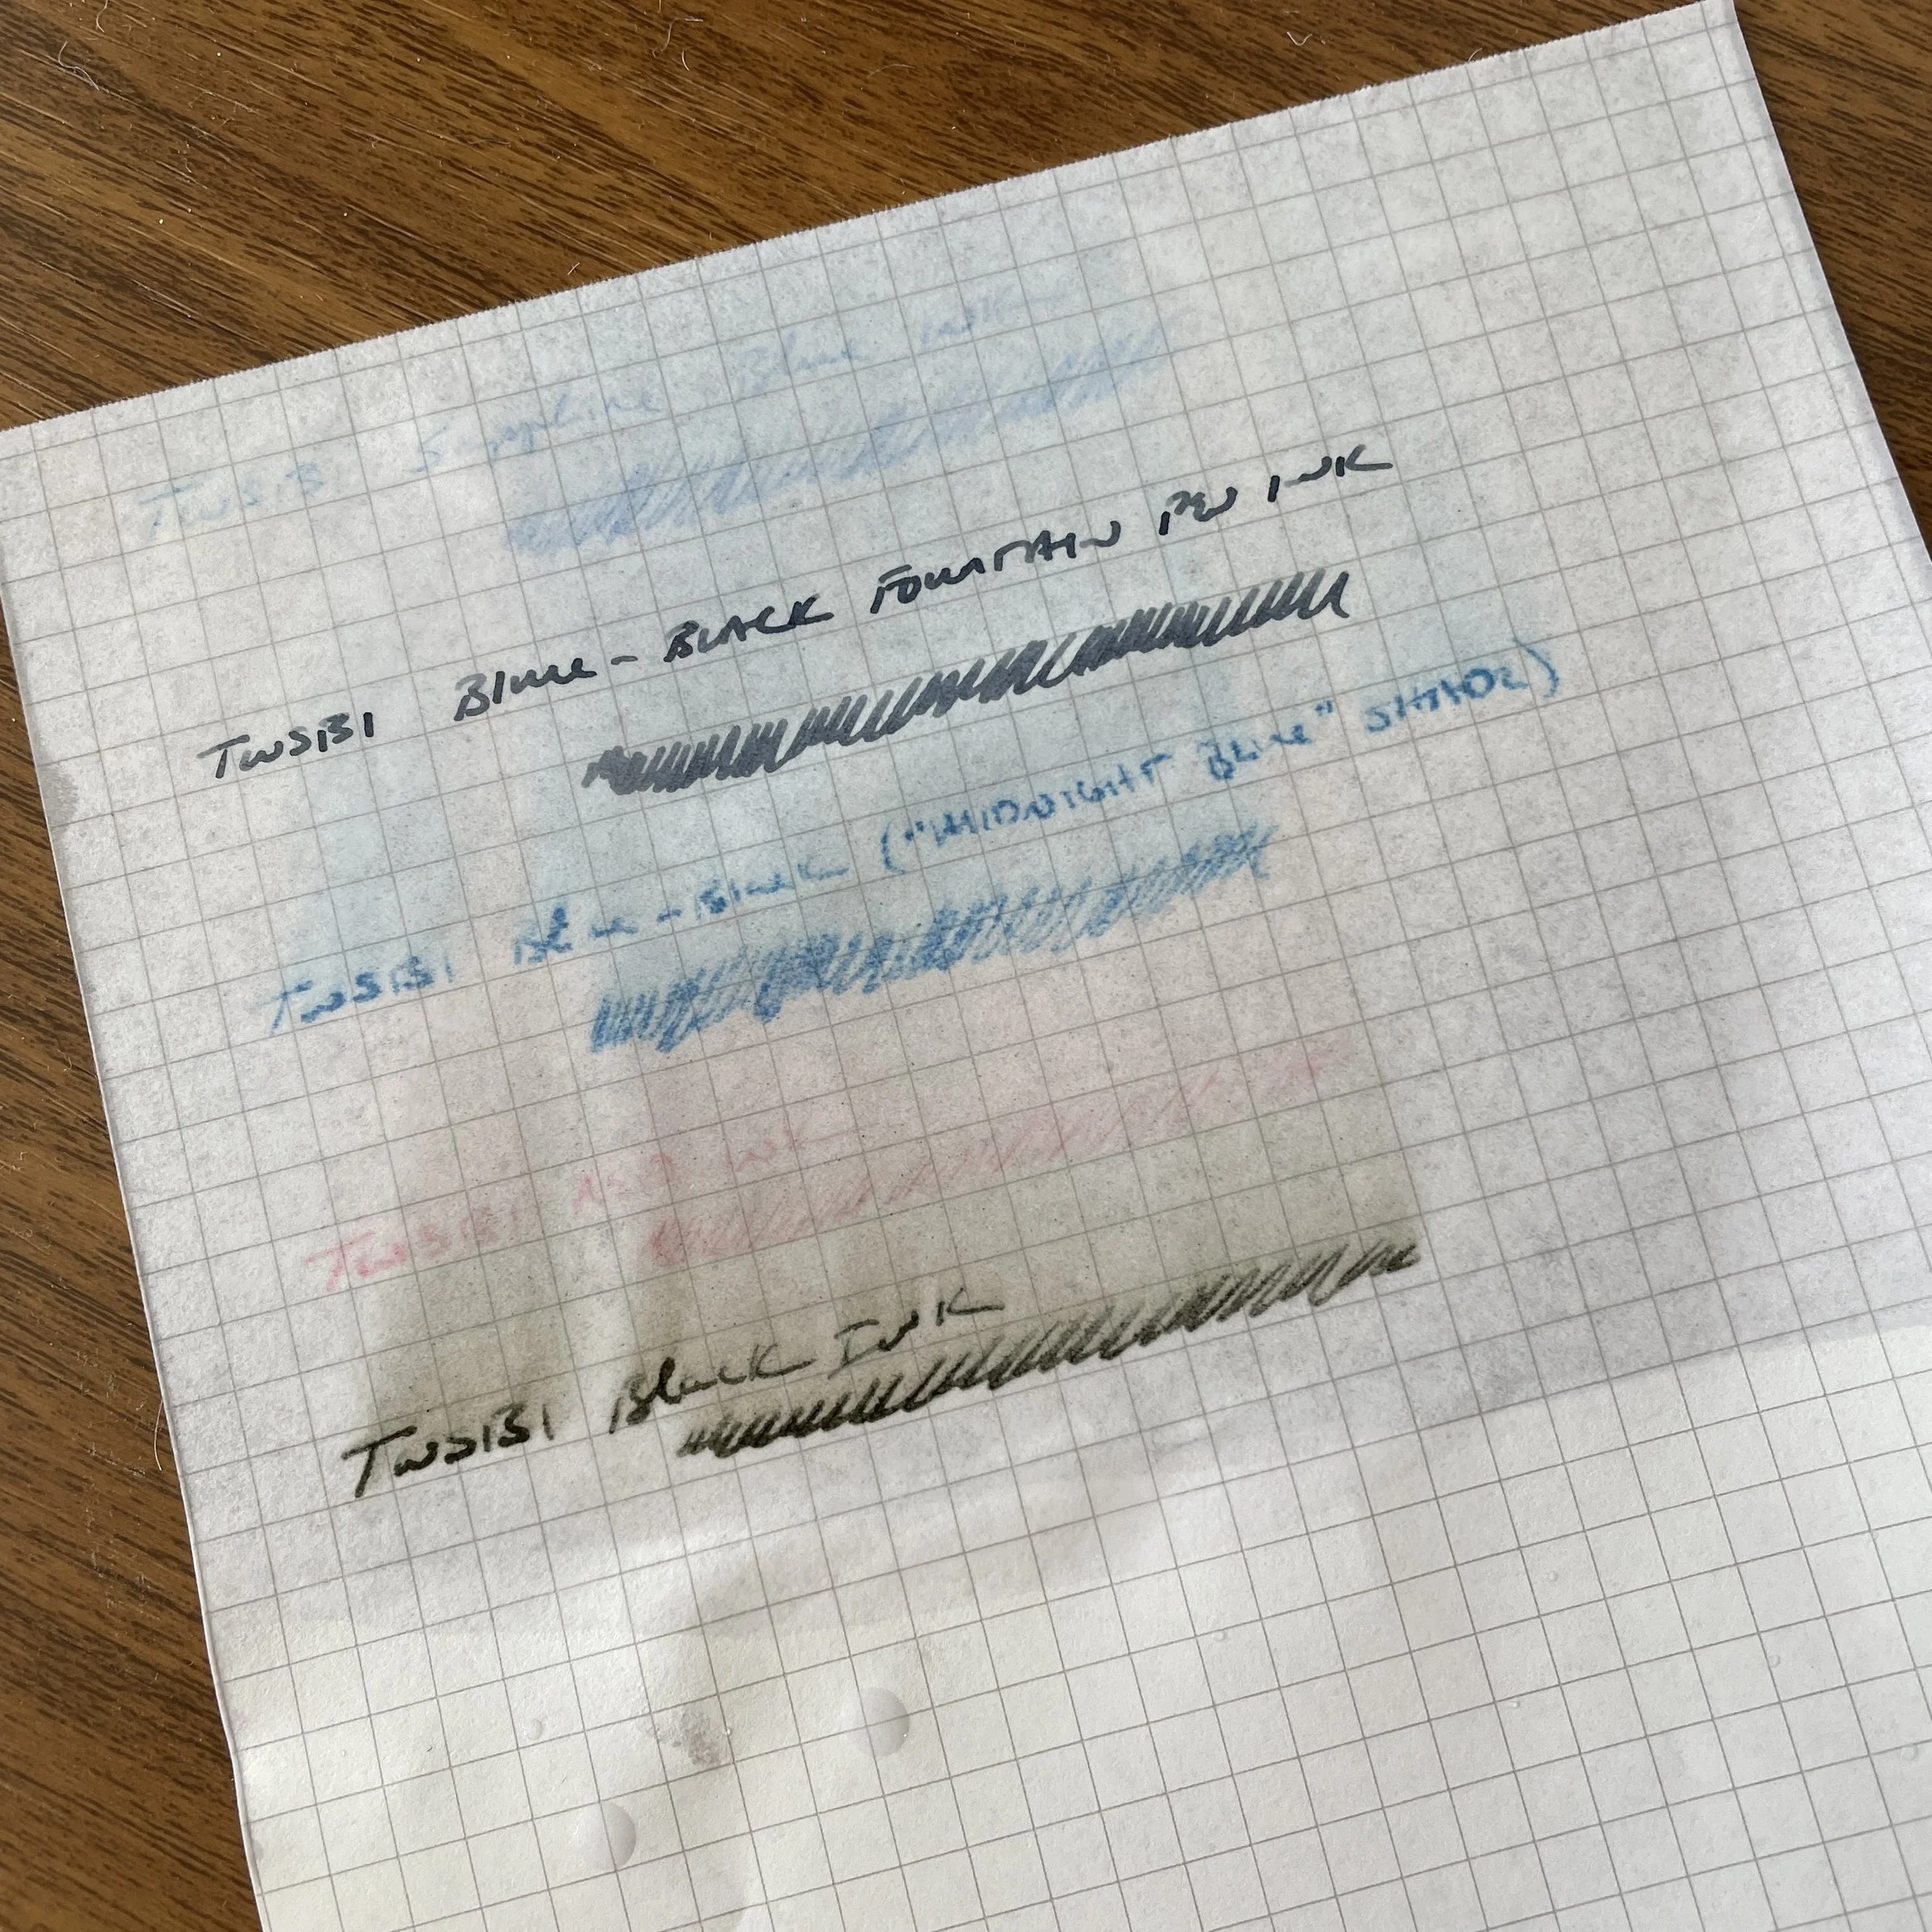 TWSBI Sapphire Blue Ink
TWSBI Blue-BLACK FOUNTAIN PEN INK
TWSBI Blue-Black ("MIDNIGHT BLUE" SHADE)
TWSBI RED INK
TWSBI Black INK